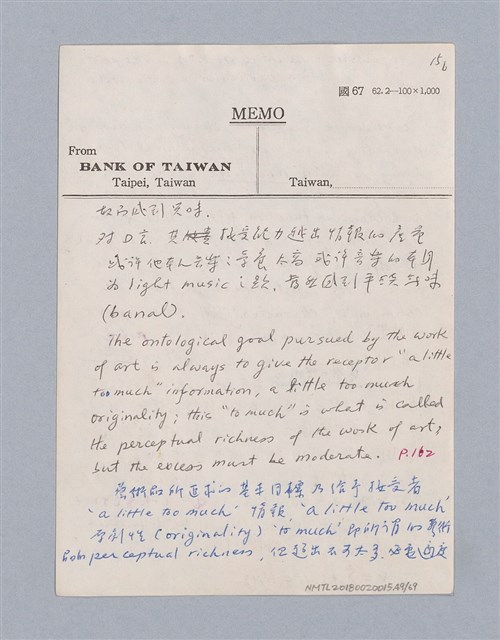 15b
國 67 62.2—100×1,000
MEMO
From
BANK OF TAIWAN
Taipei, Taiwan
Taiwan,
故而感到興味.
对 D 言. 其 接受能力超出情報的質量
或許他本人音樂之學養太高 或許音樂的本身
為 light music 之類, 皆感到平淡無味
(banal).
The ontological goal pursued by the work
of art is always to give the receptor "a little
too much" information, a little too much
originality; this "to much" is what is called
the perceptual richness of the work of art;
but the excess must be moderate. P.162
藝術品所追求的基本目標乃給予接受者
'a little too much' 情報, 'a little too much'
原創性 (originality) 'to much' 即所謂的藝術
品的 perceptual richness, 但超出不可太多, 必要適度
NMTL20180020015A9/69